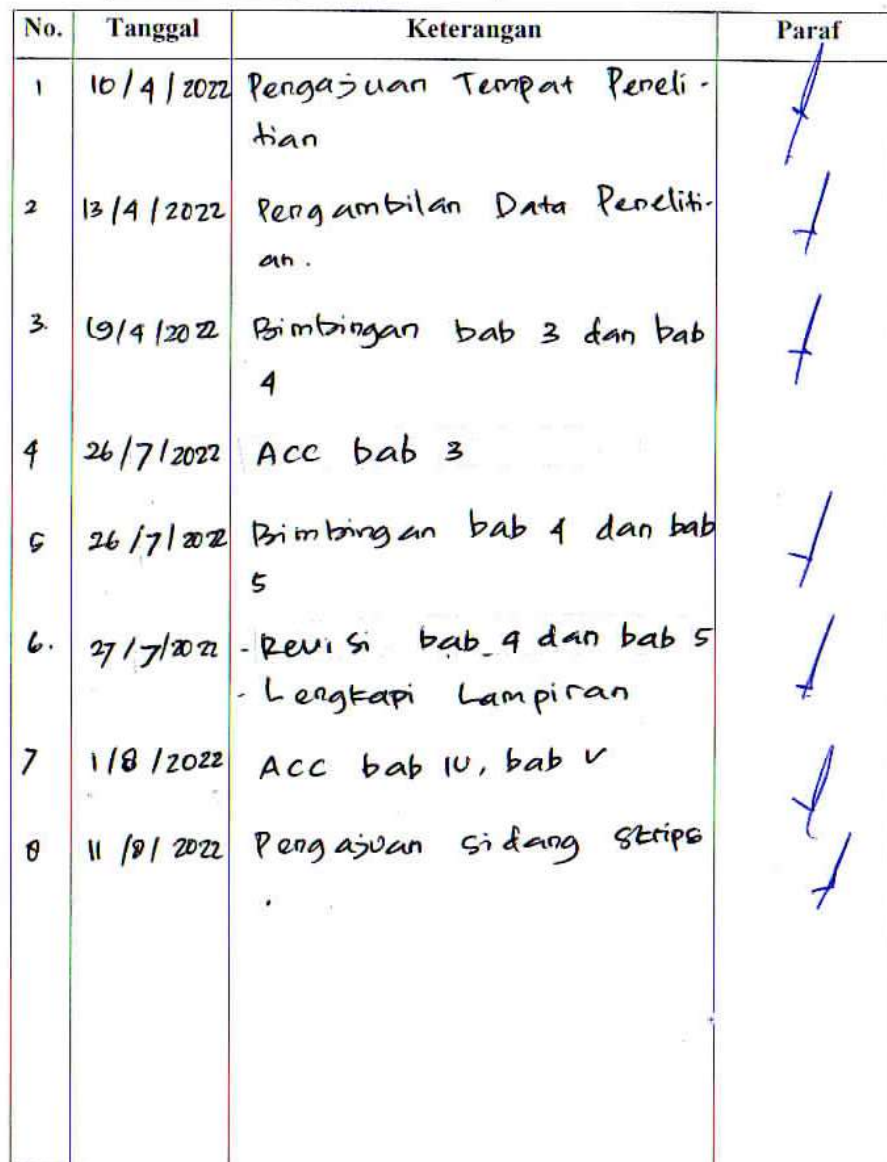 No. Tanggal Keterangan Paraf
1 10/4/2022 Pengajuan Tempat Peneli-
tian
2 13/4/2022 Pengambilan Data Peneliti-
an.
3. 19/4/2022 Bimbingan bab 3 dan bab
4
4 26/7/2022 Acc bab 3
5 26/7/2022 Bimbingan bab 4 dan bab
5
6. 27/7/2022 - Revisi bab 4 dan bab 5
- Lengkapi Lampiran
7 1/8/2022 Acc bab IV, bab V
8 11/8/2022 Pengajuan sidang Skrips
.